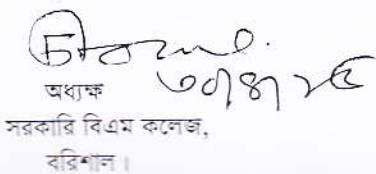 ৩০/৪/২৫
অধ্যক্ষ
সরকারি বিএম কলেজ,
বরিশাল।